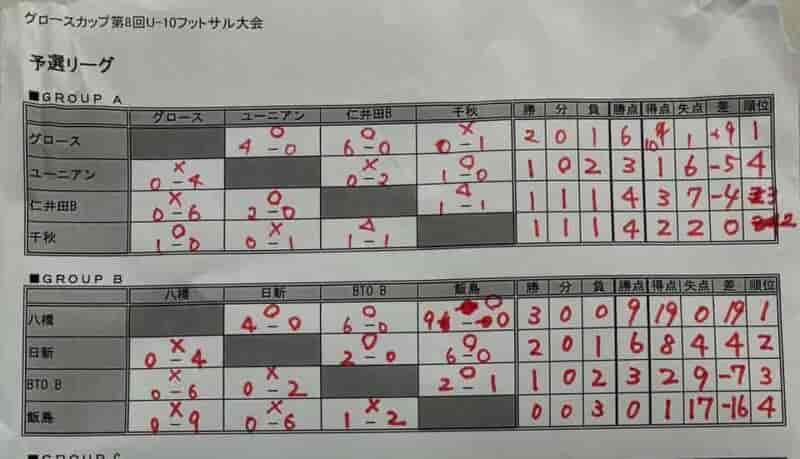 グロースカップ第8回U-10フットサル大会
予選リーグ
■GROUP A
グロース ユーニアン 仁井田B 千秋 勝 分 負 勝点 得点 失点 差 順位
グロース ○ 4-0 ○ 6-0 × 0-1 2 0 1 6 10 1 +9 1
ユーニアン × 0-4 × 0-2 ○ 1-0 1 0 2 3 1 6 -5 4
仁井田B × 0-6 ○ 2-0 △ 1-1 1 1 1 4 3 7 -4 3
千秋 ○ 1-0 × 0-1 △ 1-1 1 1 1 4 2 2 0 2
■GROUP B
八橋 日新 BTO B 飯島 勝 分 負 勝点 得点 失点 差 順位
八橋 ○ 4-0 ○ 6-0 ○ 9-0 3 0 0 9 19 0 19 1
日新 × 0-4 ○ 2-0 ○ 6-0 2 0 1 6 8 4 4 2
BTO B × 0-6 × 0-2 ○ 2-1 1 0 2 3 2 9 -7 3
飯島 × 0-9 × 0-6 × 1-2 0 0 3 0 1 17 -16 4